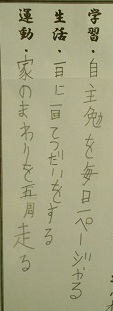 学習・自主勉を毎日一ページやる
生活・一日に一回てつだいをする
運動・家のまわりを五周走る